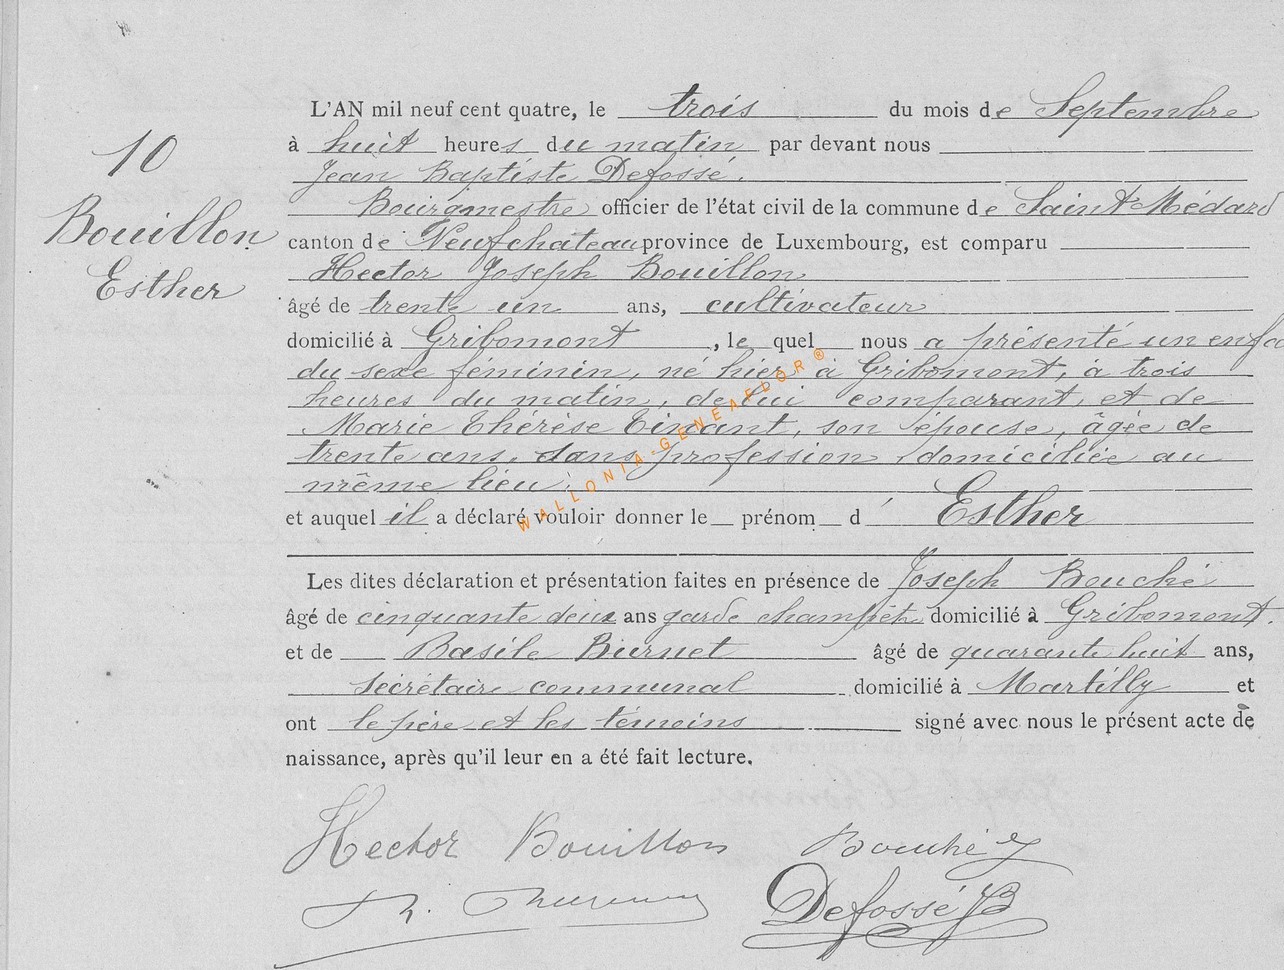 L'AN mil neuf cent quatre, le trois du mois de Septembre
10
à huit heures du matin par devant nous
Jean Baptiste Defossé.
Bourgmestre officier de l'état civil de la commune de Saint-Médard
Bouillon
canton de Neufchateau province de Luxembourg, est comparu
Hector Joseph Bouillon
Esther
âgé de trente un ans, cultivateur
domicilié à Gribomont, le quel nous a présenté un enfa
du sexe féminin, né hier à Gribomont, à trois
heures du matin, de lui comparant, et de
Marie Thérèse Tinant, son épouse, âgée de
trente ans, sans profession, domiciliée au
même lieu;
WALLONIA-GENEAFDOR®
et auquel il a déclaré vouloir donner le prénom d' Esther
Les dites déclaration et présentation faites en présence de Joseph Bouché
âgé de cinquante deux ans garde champêt. domicilié à Gribomont.
et de Basile Burnet âgé de quarante huit ans,
secrétaire communal domicilié à Martilly et
ont le père et les témoins signé avec nous le présent acte de
naissance, après qu'il leur en a été fait lecture.
Hector Bouillon Bouché J
Defossé JB